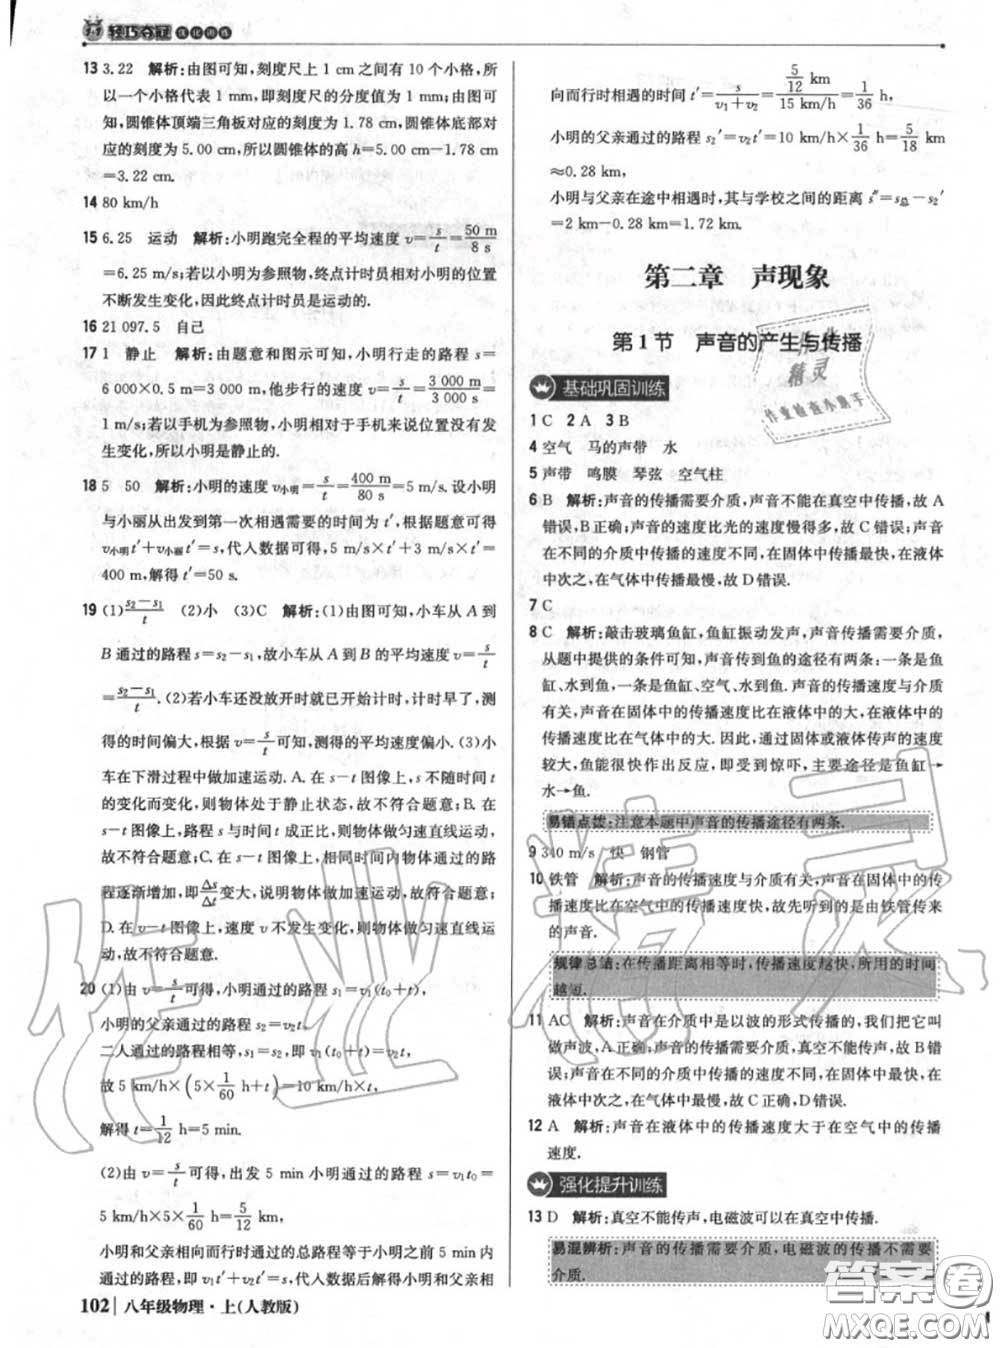 轻巧夺冠 优化训练
13 3.22 解析:由图可知,刻度尺上 1 cm 之间有 10 个小格,所
以一个小格代表 1 mm,即刻度尺的分度值为 1 mm;由图可
知,圆锥体顶端三角板对应的刻度为 1.78 cm,圆锥体底部对
应的刻度为 5.00 cm,所以圆锥体的高 h=5.00 cm-1.78 cm
=3.22 cm.
14 80 km/h
15 6.25 运动 解析:小明跑完全程的平均速度 v=s/t=50 m/8 s
=6.25 m/s;若以小明为参照物,终点计时员相对小明的位置
不断发生变化,因此终点计时员是运动的.
16 21 097.5 自己
17 1 静止 解析:由题意和图示可知,小明行走的路程 s=
6 000×0.5 m=3 000 m,他步行的速度 v=s/t=3 000 m/3 000 s=
1 m/s;若以手机为参照物,小明相对于手机来说没有发生位置变
化,所以小明是静止的.
18 5 50 解析:小明的速度 v小明=s/t=400 m/80 s=5 m/s.设小明
与小丽从出发到第一次相遇需要的时间为 t′,根据题意可得
v小明t′+v小丽t′=s,代入数据可得,5 m/s×t′+3 m/s×t′=
400 m,解得 t′=50 s.
19 (1)s₂-s₁/t (2)小 (3)C 解析:(1)由图可知,小车从 A 到
B 通过的路程 s=s₂-s₁,故小车从 A 到 B 的平均速度 v=s/t
=s₂-s₁/t.(2)若小车还没放开时就开始计时,计时早了,测
得的时间偏大,根据 v=s/t可知,测得的平均速度偏小.(3)小
车在下滑过程中做加速运动.A.在 s-t 图像上,s 不随时间 t
的变化而变化,则物体处于静止状态,故不符合题意;B.在
s-t 图像上,路程 s 与时间 t 成正比,则物体做匀速直线运动,
故不符合题意;C.在 s-t 图像上,相同时间内物体通过的路
程逐渐增加,即Δs/Δt变大,说明物体做加速运动,故符合题意;
D.在 v-t 图像上,速度 v 不发生变化,则物体做匀速直线运
动,故不符合题意.
20 (1)由 v=s/t可得,小明通过的路程 s₁=v₁(t₀+t),
小明的父亲通过的路程 s₂=v₂t.
二人通过的路程相等,s₁=s₂,即 v₁(t₀+t)=v₂t,
故 5 km/h×(5×1/60 h+t)=10 km/h×t,
解得 t=1/12 h=5 min.
(2)由 v=s/t可得,出发 5 min 小明通过的路程 s=v₁t₀=
5 km/h×5×1/60 h=5/12 km,
小明和父亲相向而行时通过的总路程等于小明之前 5 min 内
通过的路程,即 v₁t′+v₂t′=s,代入数据后解得小明和父亲相
102 八年级物理·上(人教版)
向而行时相遇的时间 t′=s/v₁+v₂=5/12 km/15 km/h=1/36 h,
小明的父亲通过的路程 s₂′=v₂t′=10 km/h×1/36 h=5/18 km
≈0.28 km.
小明与父亲在途中相遇时,其与学校之间的距离 s″=s总-s₂′
=2 km-0.28 km=1.72 km.
第二章 声现象
第 1 节 声音的产生与传播
基础巩固训练
1 C 2 A 3 B
4 空气 马的声带 水
5 声带 鸣膜 琴弦 空气柱
6 B 解析:声音的传播需要介质,声音不能在真空中传播,故 A
错误,B 正确;声音的速度比光的速度慢得多,故 C 错误;声音
在不同的介质中传播的速度不同,在固体中传播最快,在液体
中次之,在气体中传播最慢,故 D 错误.
7 C
8 C 解析:敲击玻璃鱼缸,鱼缸振动发声,声音传播需要介质,
从题中提供的条件可知,声音传到鱼的途径有两条:一条是鱼
缸、水到鱼,一条是鱼缸、空气、水到鱼.声音的传播速度与介质
有关,声音在固体中的传播速度比在液体中的大,在液体中的
传播速度比在气体中的大.因此,通过固体或液体传声的速度
较大,鱼能很快作出反应,即受到惊吓,主要途径是:鱼缸→
水→鱼.
易错点拨:注意本题中声音的传播途径有两条.
9 340 m/s 快 钢管
10 铁管 解析:声音的传播速度与介质有关,声音在固体中的传
播速度比在空气中的传播速度快,故先听到的是由铁管传来
的声音.
规律总结:在传播距离相等时,传播速度越快,所用的时间
越短.
11 AC 解析:声音在介质中是以波的形式传播的,我们把它叫
做声波,A 正确;声音的传播需要介质,真空不能传声,B 错
误;声音在不同介质中传播的速度不同,在固体中最快,在液
体中次之,在气体中最慢,C 正确,D 错误.
12 A 解析:声音在液体中的传播速度大于在空气中的传播
速度.
强化提升训练
13 D 解析:真空不能传声,电磁波可以在真空中传播.
易混辨析:声音的传播需要介质,电磁波的传播不需要
介质.
作业精灵
精灵
作业检查小助手
答案圈
MXQE.COM